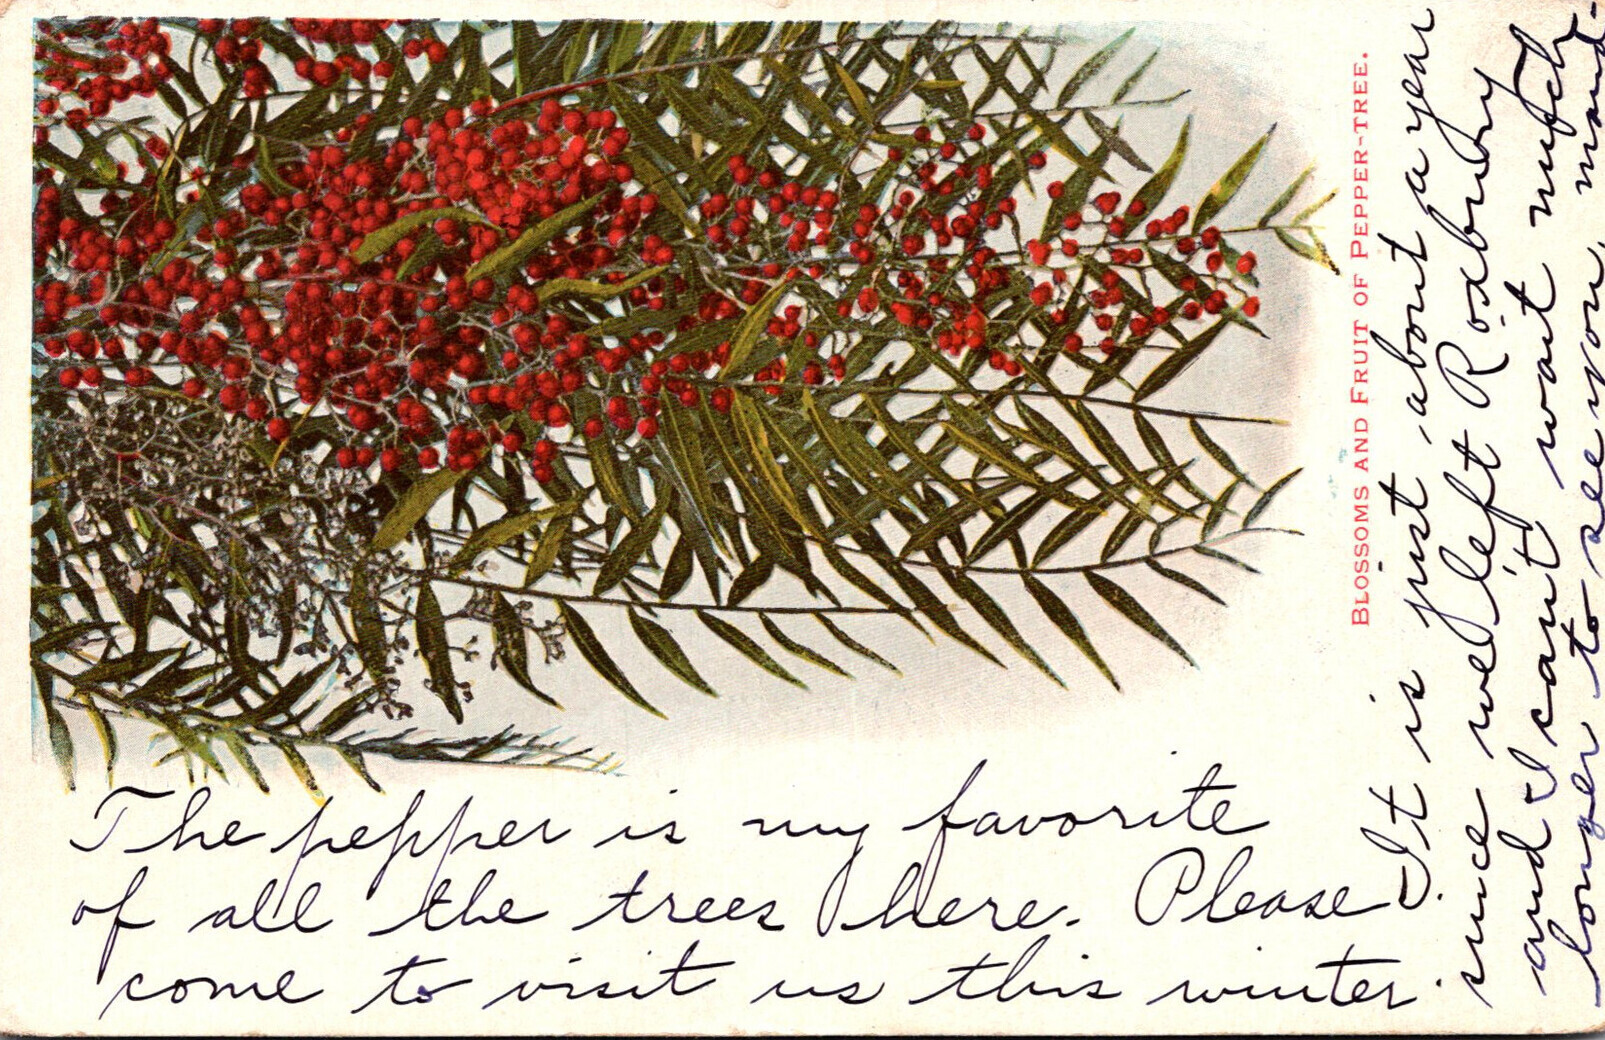 BLOSSOMS AND FRUIT OF PEPPER-TREE.
The pepper is my favorite
of all the trees here. Please
come to visit us this winter.
It is just about a year
since we left Roxbury
and I cant wait much
longer to see you,